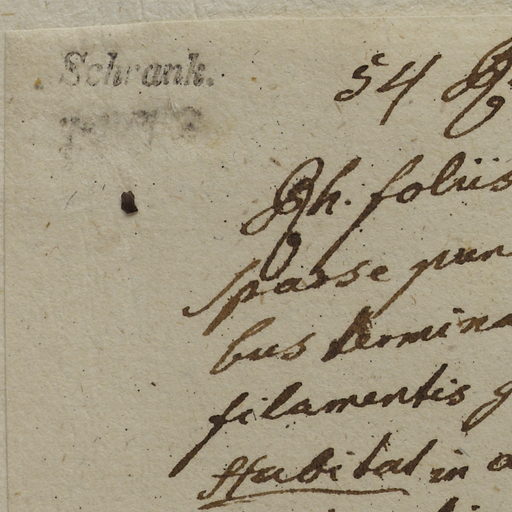 Schrank.
54
Rh. foliis
sparse pun
bus termina
filamentis g
Habitat in a